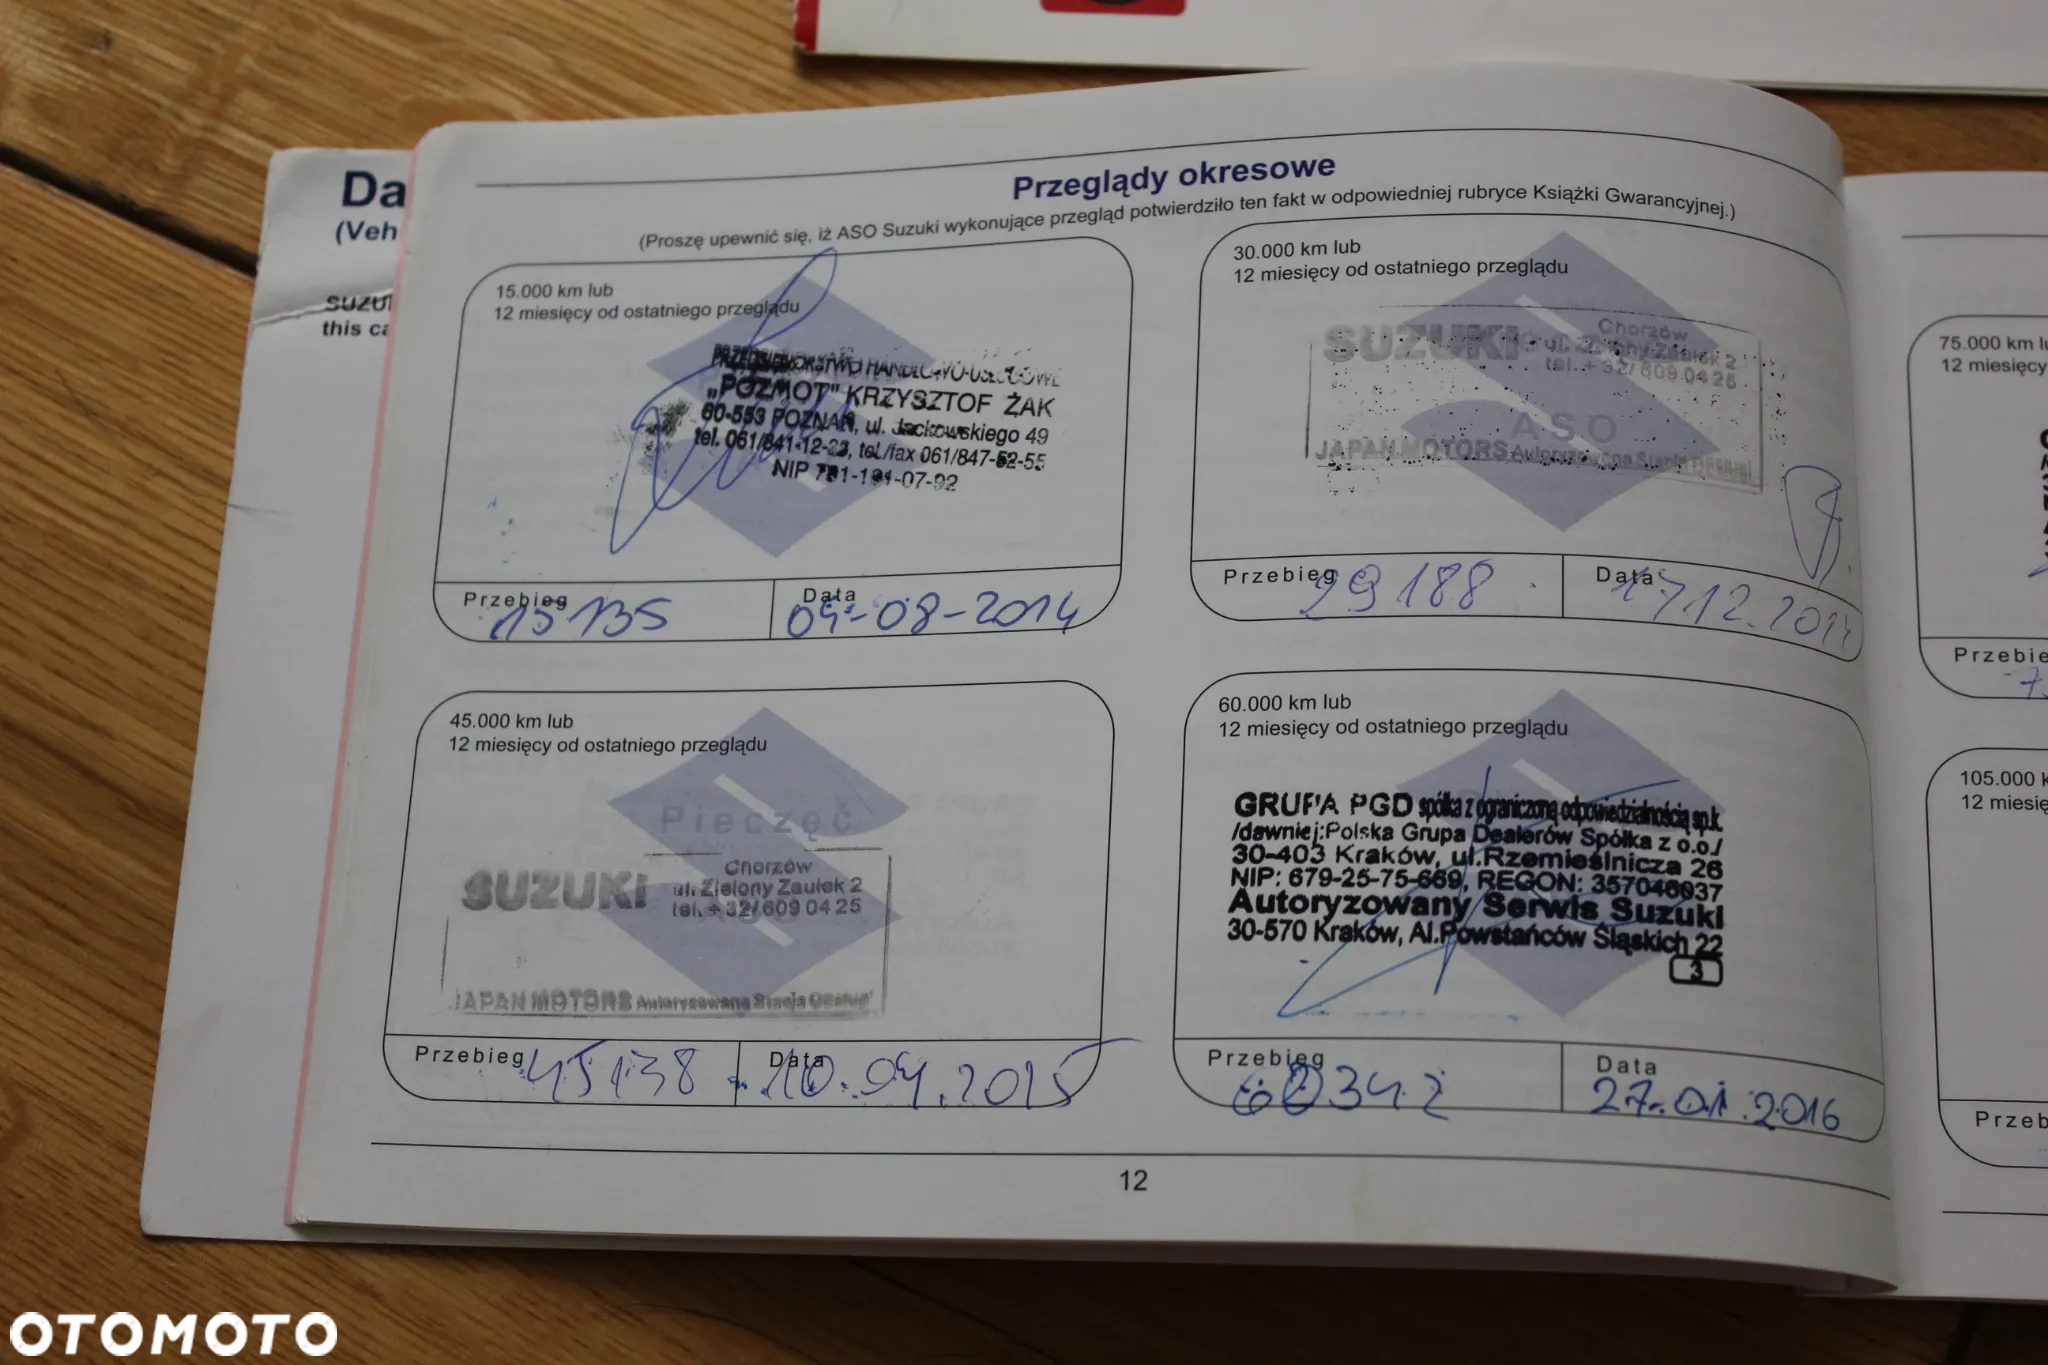 Da
(Veh
SUZU
this ca
Przeglądy okresowe
(Proszę upewnić się, iż ASO Suzuki wykonujące przegląd potwierdziło ten fakt w odpowiedniej rubryce Książki Gwarancyjnej.)
15.000 km lub
12 miesięcy od ostatniego przeglądu
PRZEDSIĘBIORSTWO HANDLOWO-USŁUGOWE
"POZMOT" KRZYSZTOF ŻAK
60-553 POZNAŃ, ul. Jackowskiego 49
tel. 061/841-12-23, tel./fax 061/847-52-55
NIP 781-191-07-92
Przebieg
15135
Data
04-08-2014
30.000 km lub
12 miesięcy od ostatniego przeglądu
SUZUKI
Chorzów
ul. Zielony Zaułek 2
tel. + 32/ 609 04 25
ASO
JAPAN MOTORS Autoryzowana Stacja Obsługi
Przebieg
29188
Data
17.12.2014
45.000 km lub
12 miesięcy od ostatniego przeglądu
Pieczęć
SUZUKI
Chorzów
ul. Zielony Zaułek 2
tel. + 32/ 609 04 25
JAPAN MOTORS Autoryzowana Stacja Obsługi
Przebieg
45138
Data
10.04.2015
60.000 km lub
12 miesięcy od ostatniego przeglądu
GRUPA PGD spółka z ograniczoną odpowiedzialnością sp.k.
/dawniej:Polska Grupa Dealerów Spółka z o.o./
30-403 Kraków, ul.Rzemieślnicza 26
NIP: 679-25-75-669, REGON: 357046937
Autoryzowany Serwis Suzuki
30-570 Kraków, Al.Powstańców Śląskich 22
3
Przebieg
60342
Data
27.01.2016
12
75.000 km lu
12 miesięcy
Przebie
105.000 k
12 miesię
Przeb
OTOMOTO